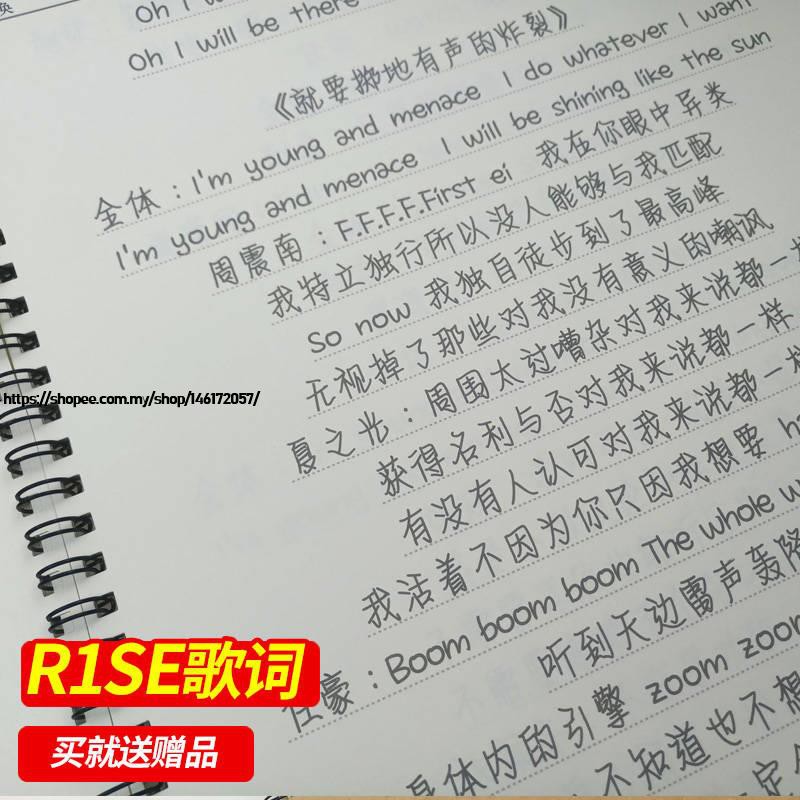 奂
Oh I w
Oh I will be there
《就要掷地有声的炸裂》
金体：I'm young and menace I do whatever I want
I'm young and menace I will be shining like the sun
周震南：F.F.F.F.First ei 我在你眼中异类
我特立独行所以没人能够与我匹配
So now 我独自徒步到了最高峰
无视掉了那些对我没有意义的嘲讽
夏之光：周围太过嘈杂对我来说都一样
获得名利与否对我来说都一样
有没有人认可对我来说都一样
我活着不因为你只因我想要 h
任豪：Boom boom boom The whole w
听到天边雷声轰隆
身体内的引擎 zoom zoom
不知道也不想
定
https://shopee.com.my/shop/146172057/
R1SE歌词
买就送赠品